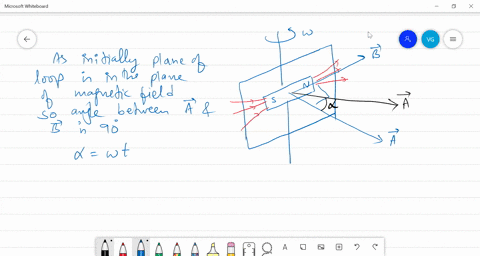 Microsoft Whiteboard
VG
As initially plane of
loop is in the plane
of magnetic field
so angle between A⃗ &
B⃗ is 90°
α = ωt
ω
B⃗
N
S
α
A⃗
A⃗
A